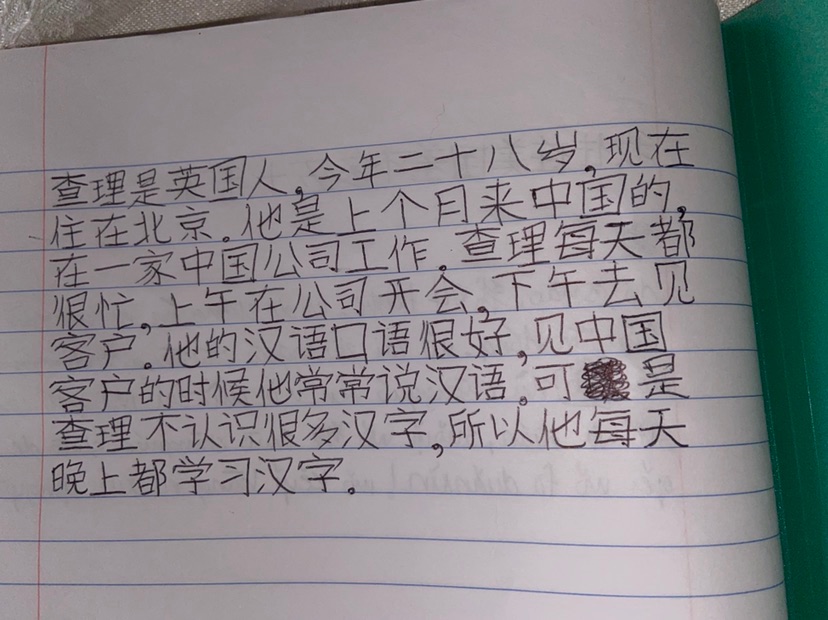 查理是英国人。今年二十八岁,现在
住在北京。他是上个月来中国的,
在一家中国公司工作。查理每天都
很忙,上午在公司开会,下午去见
客户。他的汉语口语很好,见中国
客户的时候他常常说汉语。可是
查理不认识很多汉字,所以他每天
晚上都学习汉字。